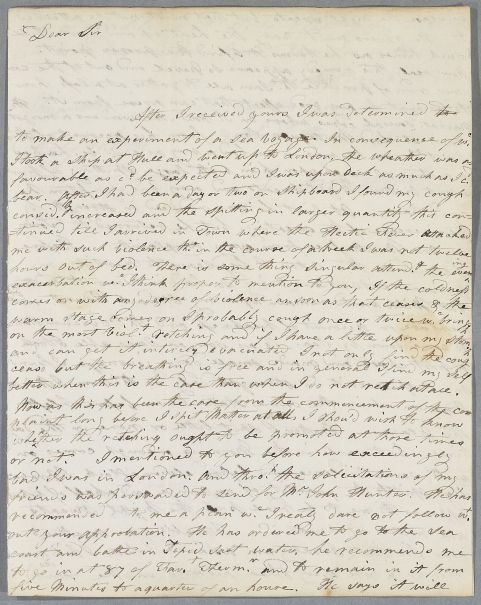 Dear Sir
After I received yours I was determined to
to make an experiment of a Sea Voyage. In consequence of wc.
I took a ship at Hull and went up to London, the wheather was as
favourable as cd. be expected and I was upon Deck as much as I cd.
bear. After I had been a day or two on Shipboard I found my cough
considy. increased and the Spitting in larger quantity this con-
tinued till I arrived in Town where the Hectic Fever attacked
me with such violence tht. in the course of a week I was not twelve
hours out of bed. There is some thing singular attendg. the evening
exacerbation wc. I think proper to mention to you, If the coldness
comes on with any degree of violence as soon as that ceases & the
warm stage comes on I probably cough once or twice wc. brings
on the most violt. retching and if I have a little upon my stomh.
and can get it intirely evacuated I not only find the cough
ceas but the breathing is free and in general I find my self
better when this is the case than when I do not retch at ace.
Now as this has been the case from the commencement of the com
plaint long before I spit Matter at all. I shou'd wish to know
whether the retching ought to be promoted at those times
or not I mentioned to you before how exceedingly
bad I was in London. And thro' the solicitations of my
friends was perswaded to send for Mr. John Hunter. He has
recommended to me a plan wc. I realy dare not follow wt.
out your approbation. He has ordered me to go to the sea
coast and bathe in Tepid salt water, he recommends me
to go in at 87 of Thermr. and to remain in it from
five Minutes to a quarter of an houre. He says it will